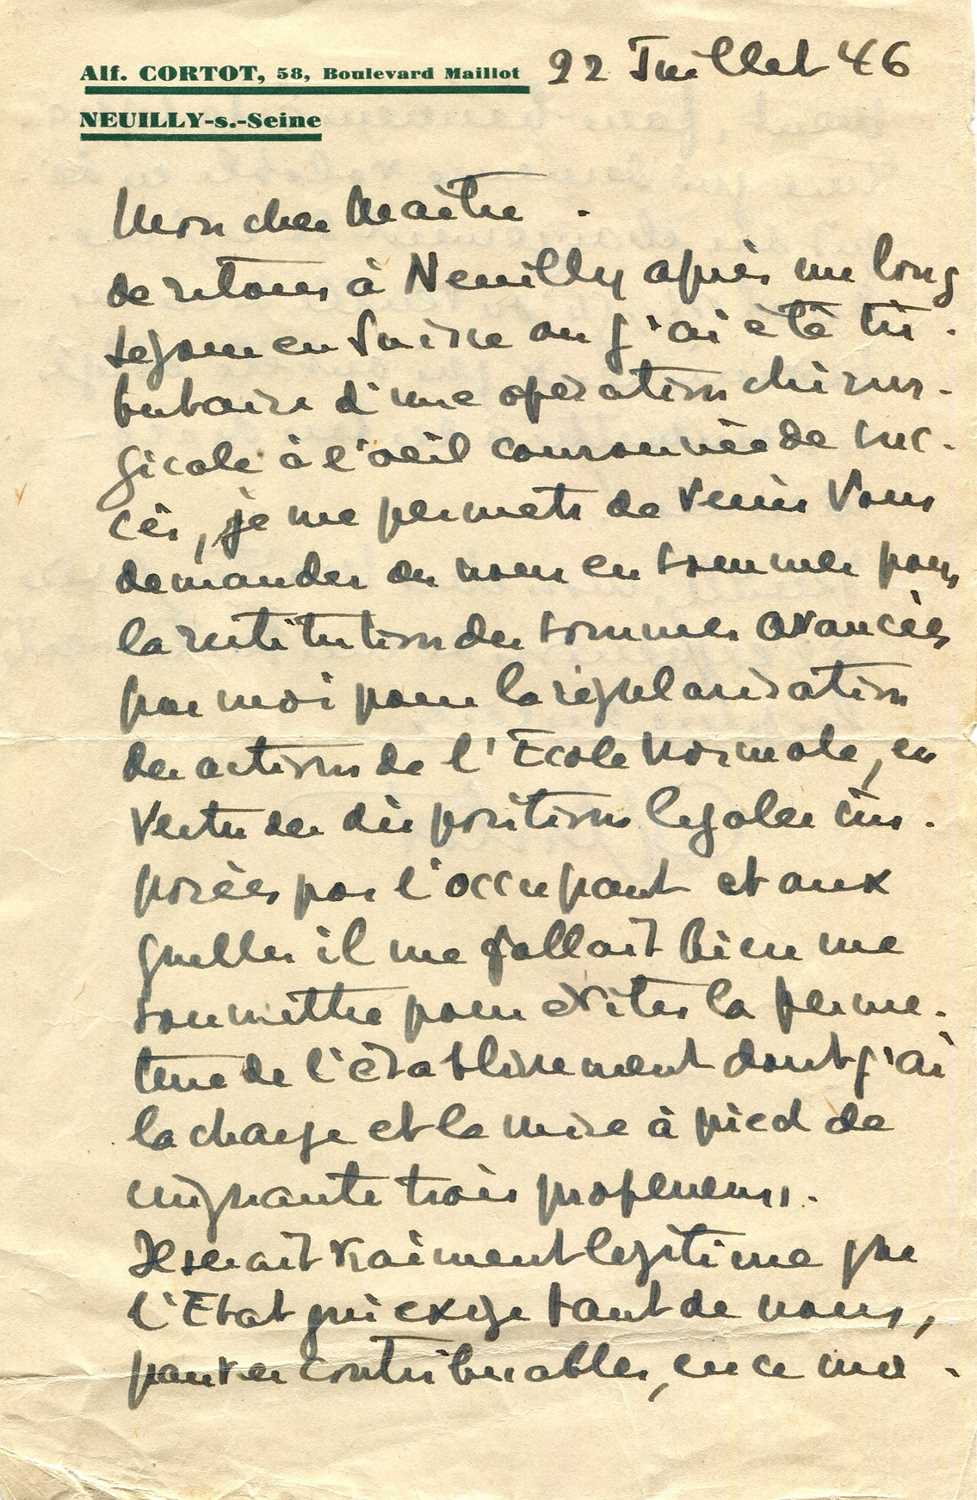 Alf. CORTOT, 58, Boulevard Maillot
22 Juillet 46
NEUILLY-s.-Seine
Mon cher Maître.
de retour à Neuilly après un long
séjour en Suisse ou j'ai été tri-
butaire d'une opération chirur-
gicale à l'oeil couronnée de suc-
cès, je me permets de venir vous
demander ou nous en sommes pour
la restitution des sommes avancées
par moi pour la régularisation
des actions de l'Ecole Normale, en
vertu des dispositions légales im-
posées par l'occupant et aux
quelles il me fallait bien me
soumettre pour éviter la ferme-
ture de l'établissement dont j'ai
la charge et la mise à pied de
cinquante trois professeurs.
Il serait vraiment légitime que
l'Etat qui exige tant de nous,
pauvres contribuables, en ce mo-